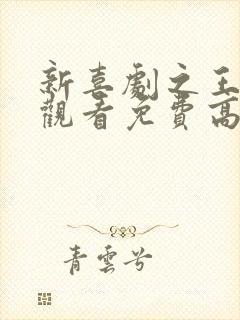 新喜劇之王
觀看免費高
青雲兮